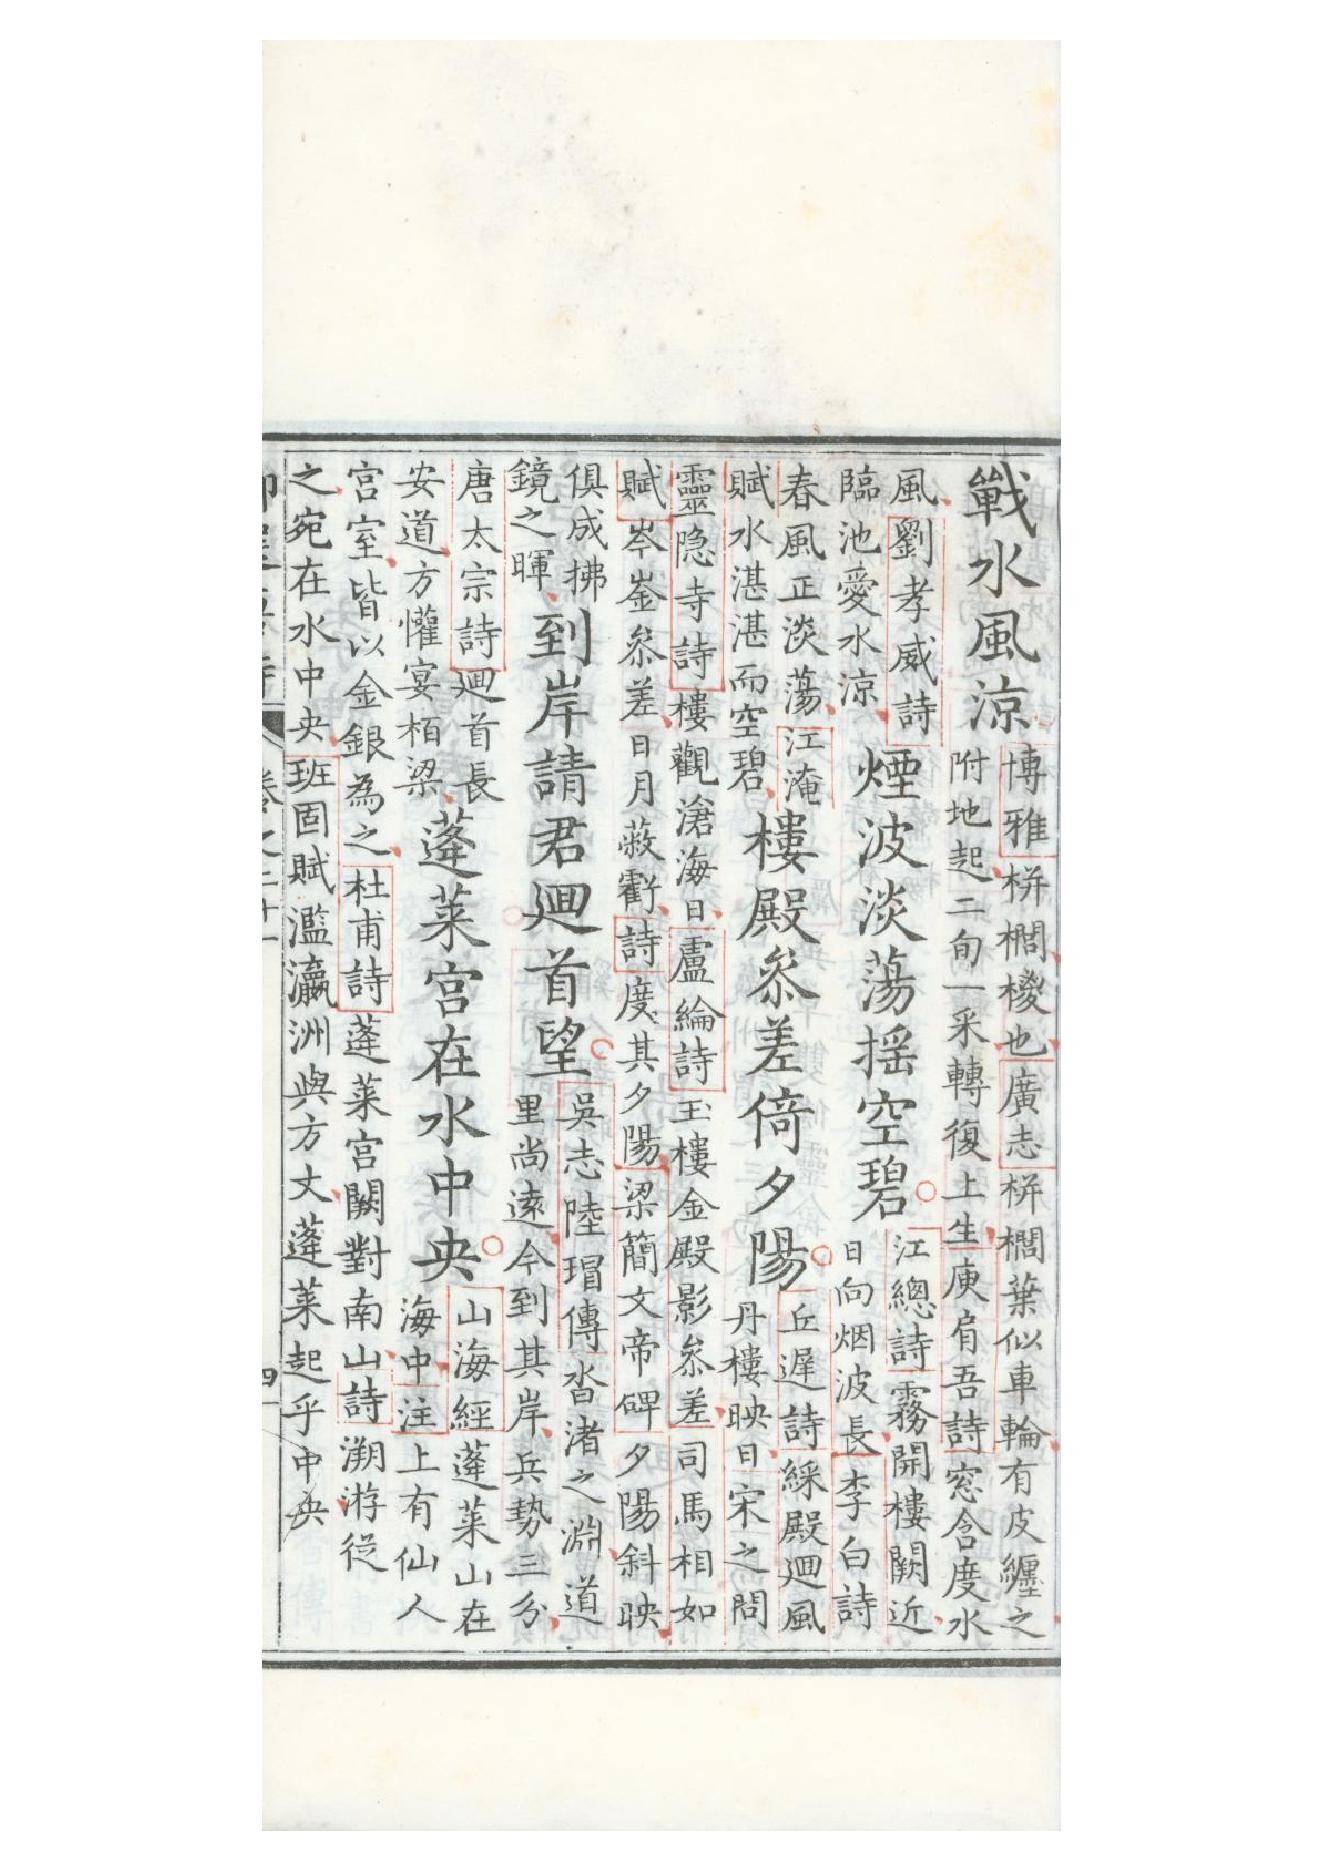 戰水風涼
博雅栟櫚椶也廣志栟櫚葉似車輪有皮纏之
附地起二旬一采轉復上生庾肩吾詩窓含度水
風劉孝威詩
臨池愛水涼
煙波淡蕩揺空碧
江總詩霧開樓闕近
日向烟波長李白詩
春風正淡蕩江淹
賦水湛湛而空碧
樓殿叅差倚夕陽
丘遲詩綵殿迴風
丹樓映日宋之問
靈隐寺詩樓觀滄海日盧綸詩玉樓金殿影叅差司馬相如
賦岑崟叅差日月蔽虧詩度其夕陽梁簡文帝碑夕陽斜映
俱成拂
鏡之暉
到岸請君迴首望
吳志陸瑁傳沓渚之淵道
里尚遠今到其岸兵勢三分
唐太宗詩迴首長
安道方懽宴栢梁
蓬莱宮在水中央
山海經蓬莱山在
海中注上有仙人
宮室皆以金銀為之杜甫詩蓬莱宮闕對南山詩溯游從
之宛在水中央班固賦濫瀛洲與方丈蓬莱起乎中央